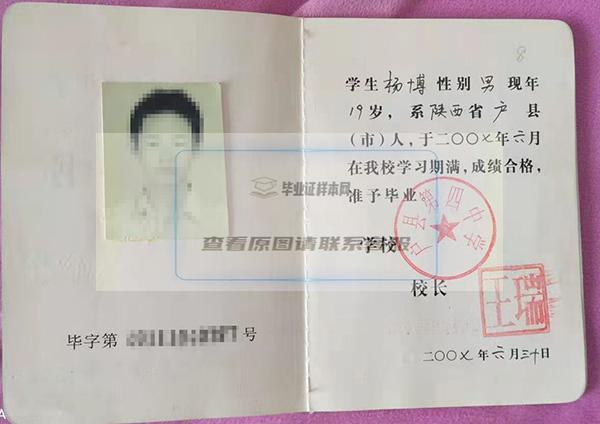 8
学生杨博性别男现年
19岁，系陕西省户县
(市)人，于二〇〇七年六月
在我校学习期满，成绩合格，
准予毕业
学校
户县第四中学
校长
王瑞
二〇〇七年六月三十日
毕字第
号
毕业证样本网
查看原图请联系
报
A